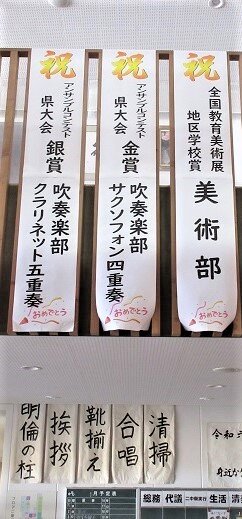 祝
全国教育美術展
地区学校賞
美術部
おめでとう
祝
アンサンブルコンテスト
県大会 金賞
吹奏楽部
サクソフォン四重奏
おめでとう
祝
アンサンブルコンテスト
県大会 銀賞
吹奏楽部
クラリネット五重奏
おめでとう
清掃
合唱
靴揃え
挨拶
明倫の柱
令和
身近か
月予定表
総務
代議
生活
清